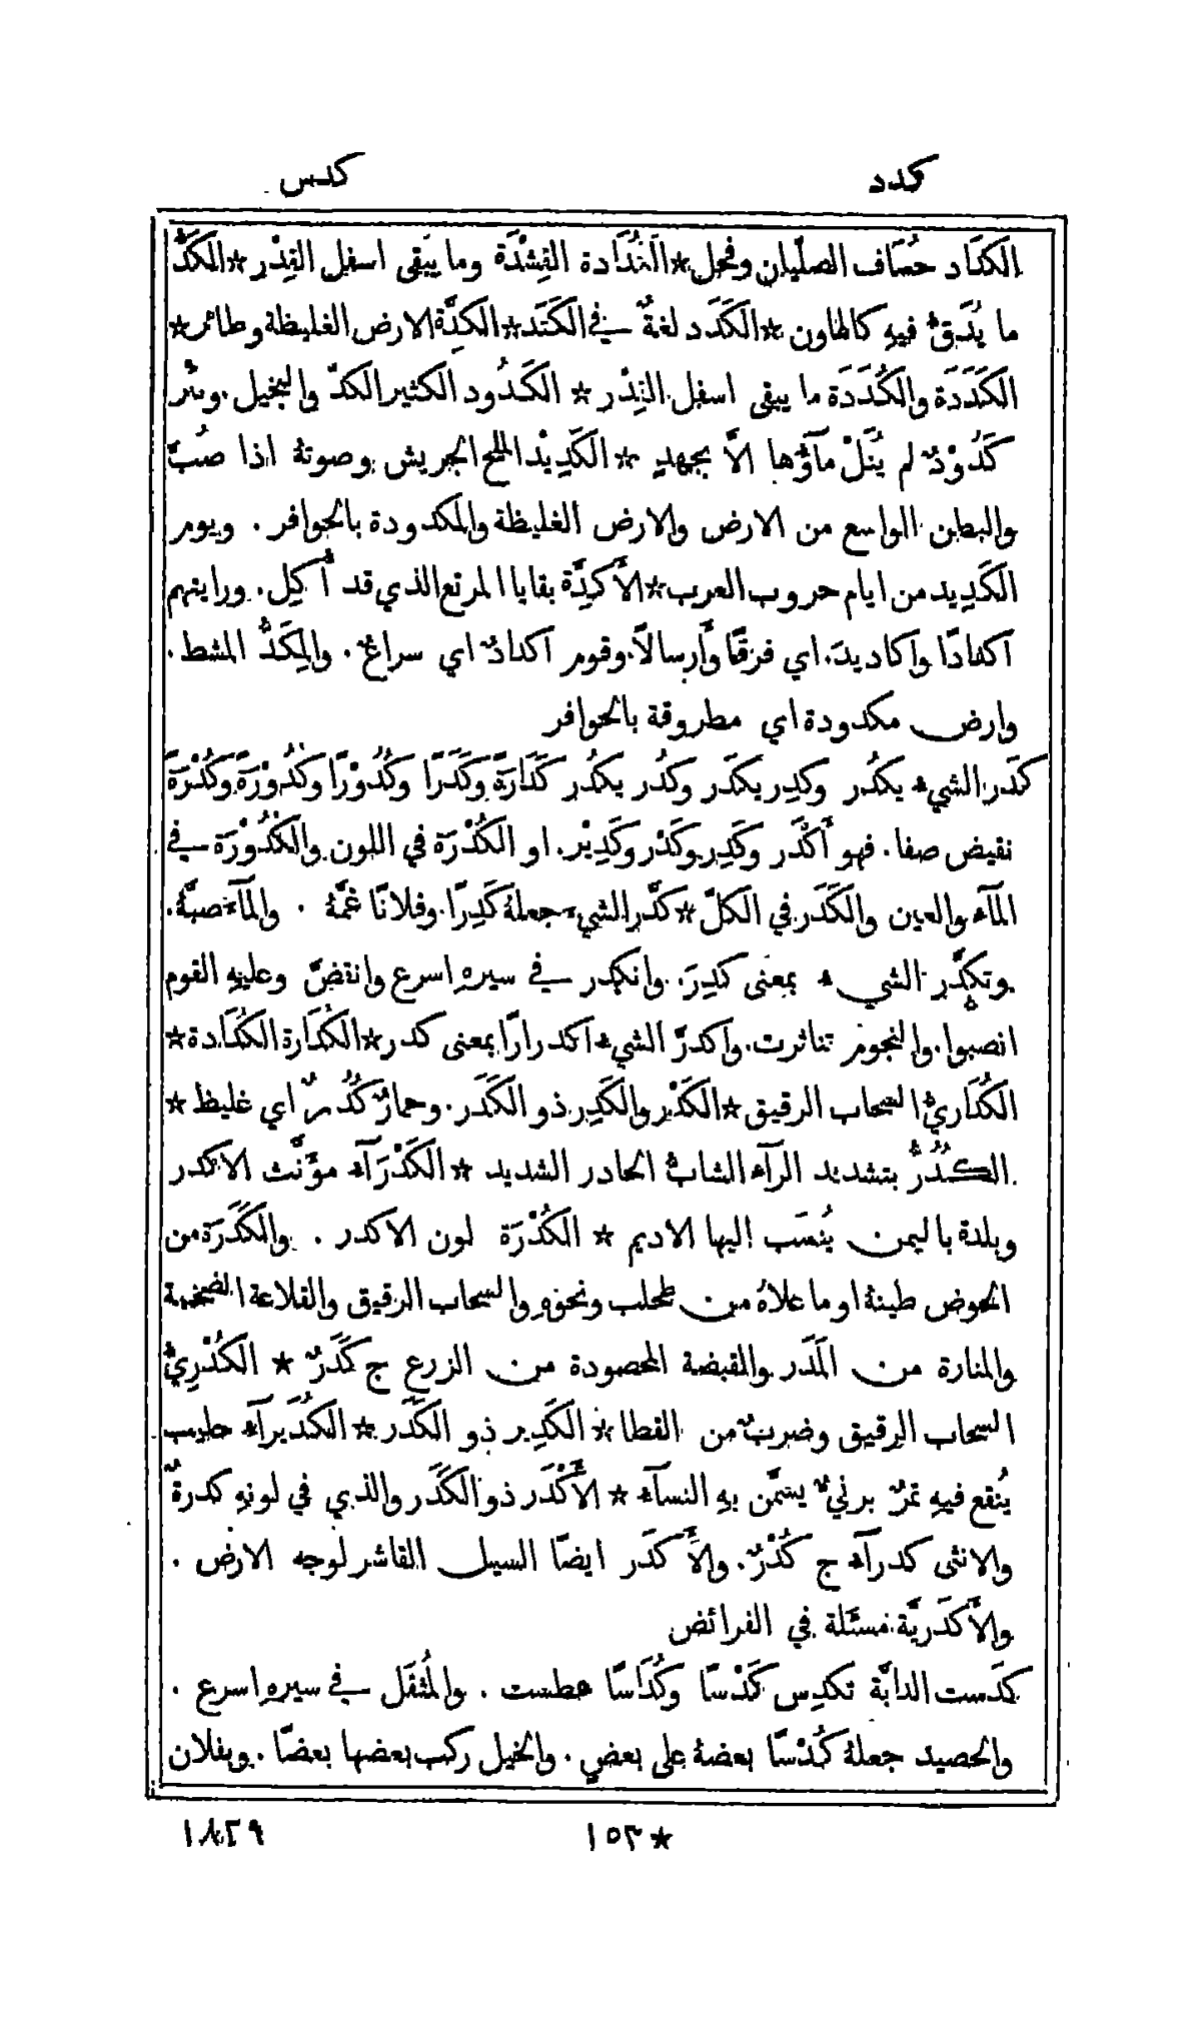 كدد
كدس
الكُدَاد حُسَاف الصلّيان وفحل * الكُدَادة القِشْدَة وما يَبقى اسفل القِدْر * الكَدّ
ما يُدَقُّ فيهِ كالهاون * الكَدَد لغةٌ في الكَتَد * الكِدَّة الارض الغليظة وطائر *
الكَدَدَة والكُدَدَة ما يبقى اسفل القِدْر * الكَدُود الكثير الكدّ والبخيل. وبئر
كَدُوْدٌ لم يُنَلْ مآؤُها الاَّ بجهدٍ * الكَدِيْد الملح الجريش وصوتهُ اذا صُبَّ
والبطن الواسع من الارض والارض الغليظة والمكدودة بالحوافر. ويوم
الكَدِيد من ايام حروب العرب * الأَكِدَّة بقايا المرتع الذي قد أُكِل. ورايتهم
اكدادًا واكاديدَ. اي فرَقًا وأَرسالاً. وقوم اكدادٌ اي سراعٌ. والمِكَدُّ المشط.
وارض مكدودة اي مطروقة بالحوافر
كدَر الشيءُ يكدُر وكدِر يكدَر وكدُر يكدُر كَدَارَةً وكَدَرًا وكُدُوْرًا وكُدُوْرَةً وكُدْرَةً
نقيض صفا. فهو أَكْدَر وكَدِر وكَدْر وكَدِيْر. او الكُدْرَة في اللون والكُدُوْرَة في
المآء والعين والكَدَر في الكلّ * كدَّر الشيءَ جعلهُ كَدِرًا. وفلانًا غمَّهُ. والمآءَ صبَّهُ.
وتكدَّر الشيءُ بمعنى كدِرَ. وانكدر في سيرهِ اسرع وانقضّ وعليهِ القوم
انصبوا. والنجوم تناثرت. واكدرّ الشيءُ اكدرارًا بمعنى كدر * الكُدَارة الكُدَادة *
الكُدَاريُّ السحاب الرقيق * الكَدْر والكَدِر ذو الكَدَر. وحمارٌ كُدُرٌ اي غليظ *
الكُدُرُّ بتشديد الرآء الشابُّ الحادر الشديد * الكَدْرَآء مؤَنَّث الاكدر
وبلدة باليمن يُنسَب اليها الاديم * الكُدْرَة لون الاكدر. والكَدَرَة من
الحوض طينهُ او ما علاهُ من طحلب ونحوهِ والسحاب الرقيق والقلاعة الضخمة
والمنارة من المَدَر والقبضة المحصودة من الزرع ج كَدَرٌ * الكُدْرِيُّ
السحاب الرقيق وضربٌ من القطا * الكَدِير ذو الكَدَر * الكُدَيرآء حليب
يُنقَع فيهِ تمرٌ برنيٌّ يسمَّن بهِ النسآء * الأَكْدَر ذو الكَدَر والذي في لونهِ كدرةٌ
والانثى كدرآء ج كُدْرٌ. والأَكدَر ايضًا السيل القاشر لوجه الارض.
والأَكدَريَّة مسئلة في الفرائض
كدَست الدابَّة تكدِس كَدْسًا وكُدَاسًا عطست. والمُثقَل في سيرهِ اسرع.
والحصيد جعلهُ كُدْسًا بعضهُ على بعضٍ. والخيل ركب بعضها بعضًا. وبفلان
* ١٥٣
١٨٢٩